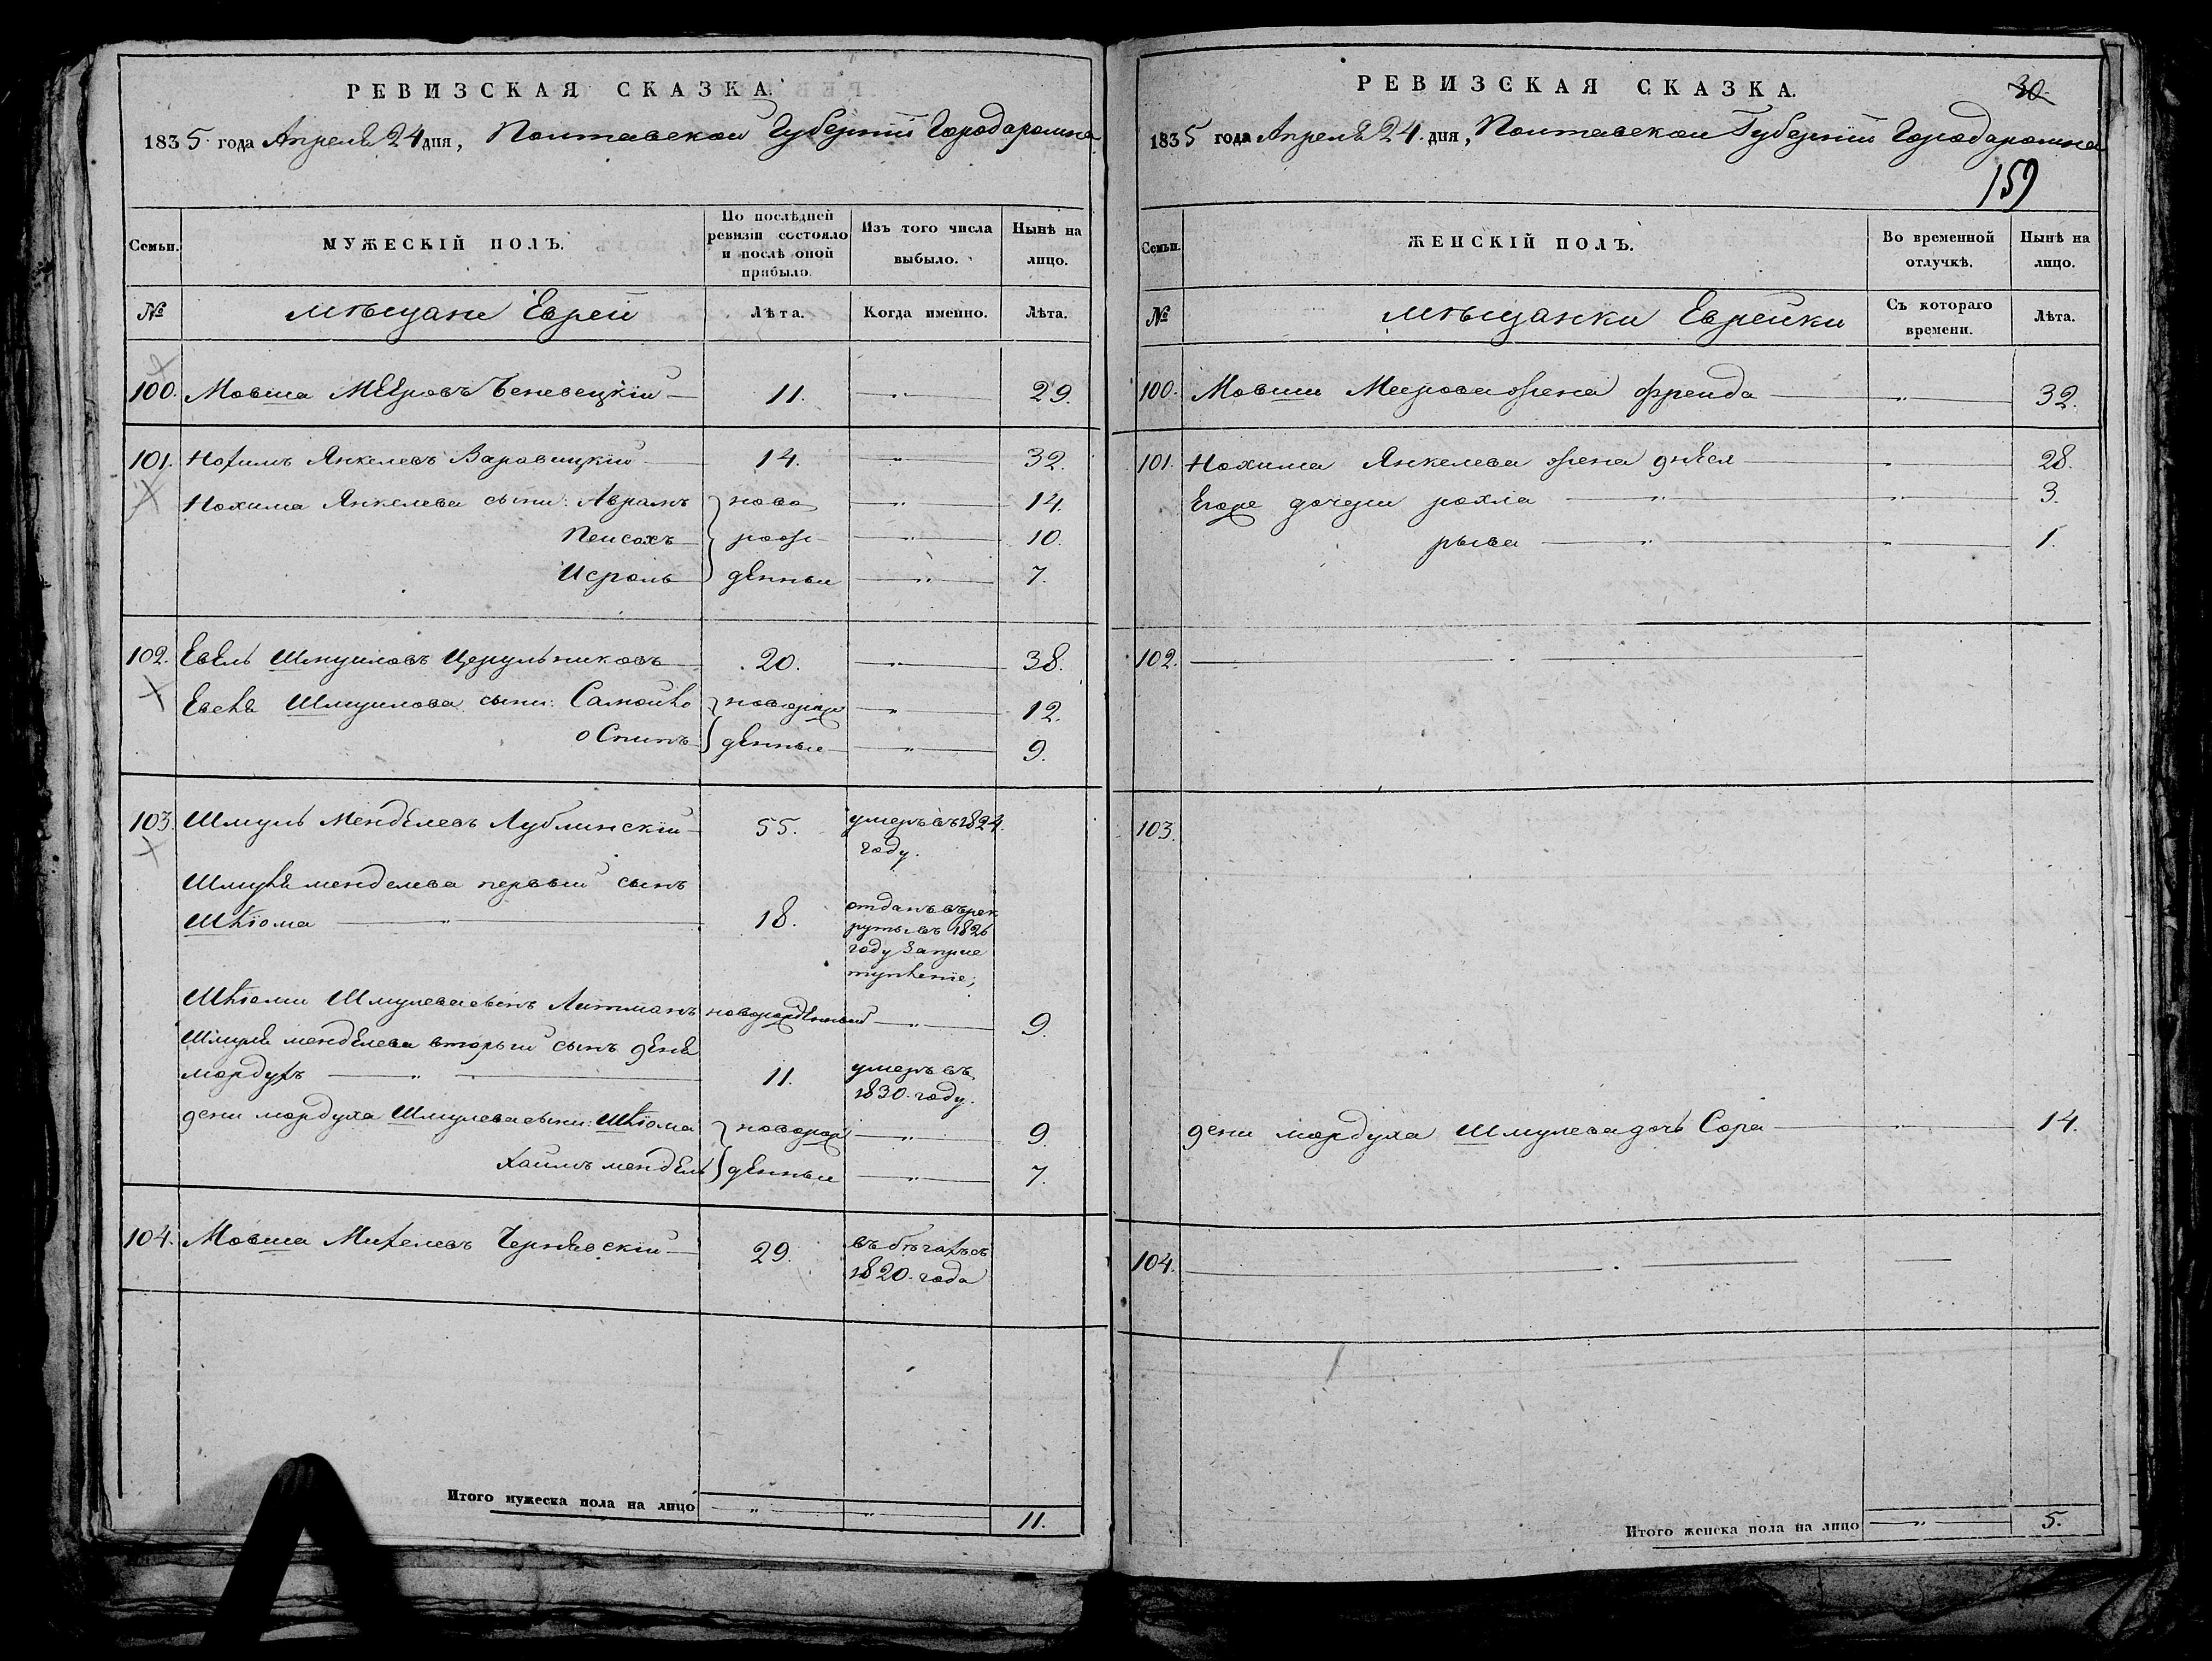 РЕВИЗСКАЯ СКАЗКА.
1835 года Апреля 24 дня, Полтавской Губернїи Города ромна
Семьи.
МУЖЕСКІЙ ПОЛЪ.
По послѣдней ревизіи состояло и послѣ оной прибыло.
Изъ того числа выбыло.
Нынѣ на лицо.
№
мѣщане Евреи
Лѣта.
Когда именно.
Лѣта.
100. Мовша Мееровъ 11. 29.
101. Нохимъ Янкелевъ 14. 32.
Нохима Янкелева сыны: Аврамъ ново 14.
Пейсахъ рож 10.
Исроль денные 7.
102. Евель Шмуиловъ Церульниковъ 20. 38.
Евеля Шмуилова сыны: Самойло новорож 12.
Осипъ денные 9.
103. Шмуль Менделевъ Лублинскїй 55. умеръ въ 1824.
году.
Шмуля менделева первый сынъ
Шлїома 18. отданъ въ рек
руты въ 1826
году за прес
тупленїе;
Шлїомы Шмулева сынъ Литманъ новорожденный 9.
Шмуля менделева вторый сынъ
мордухъ 11. умеръ въ
1830. году.
мордуха Шмулева сыны: Шлїома новорож 9.
Хаимъ мендель денные 7.
104. Мовша Михелевъ Чернявскїй 29. въ бѣгахъ съ
1820. года
Итого мужеска пола на лицо 11.
РЕВИЗСКАЯ СКАЗКА.
30
1835 года Апреля 24. дня, Полтавской Губернїи Города ромна
159
Семьи.
ЖЕНСКІЙ ПОЛЪ.
Во временной отлучкѣ.
Нынѣ на лицо.
№
мѣщанки Еврейки
Съ котораго времени.
Лѣта.
100. Мовши Меерова жена фрейда 32.
101. Нохима Янкелева жена 28.
Егоже дочери рохля 3.
рыва 1.
102.
103.
мордуха Шмулева дочь Сора 14.
104.
Итого женска пола на лицо 5.